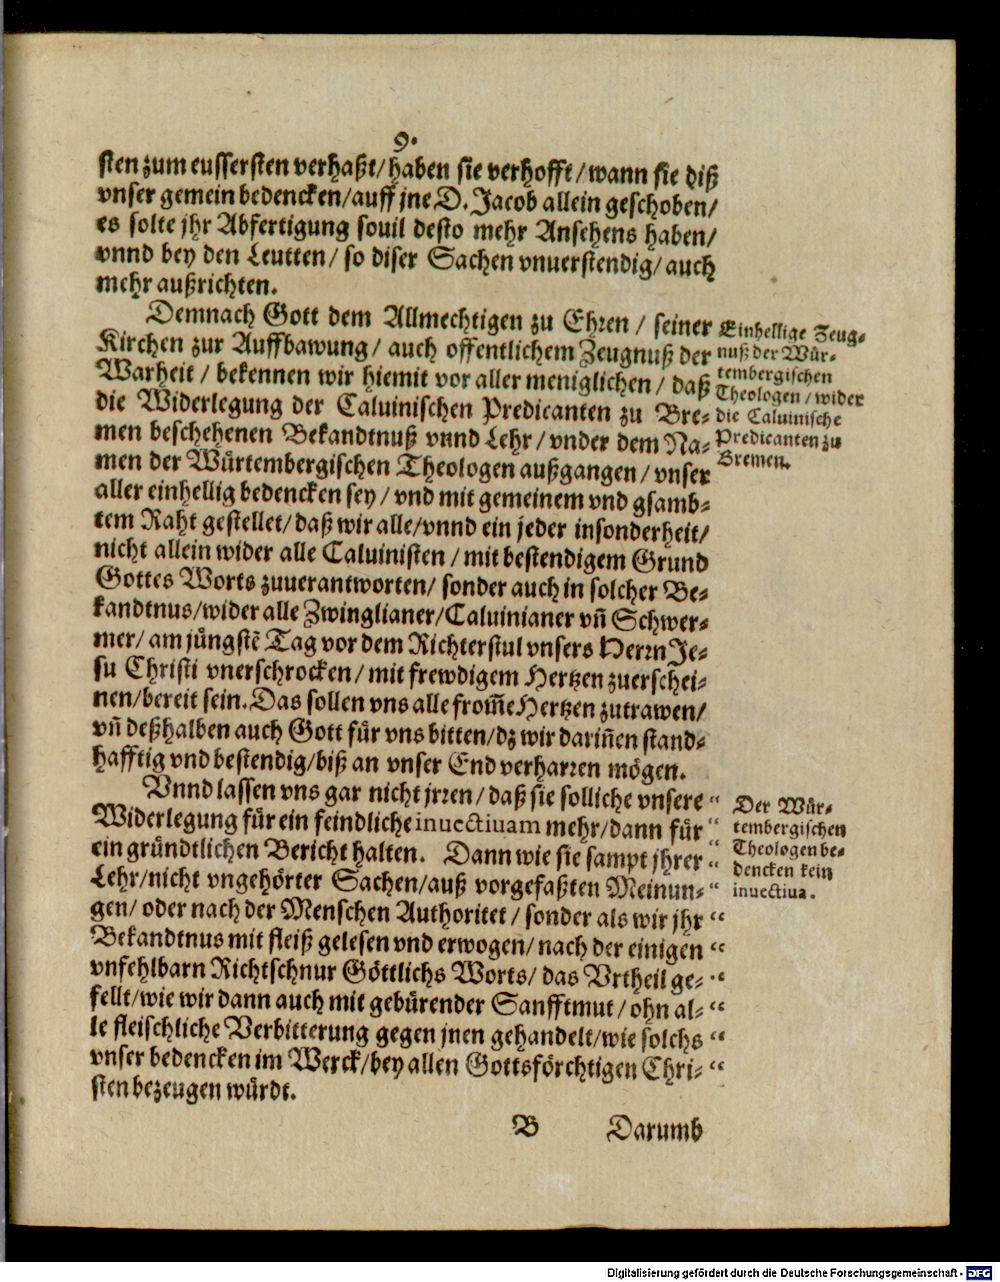 9.
sten zum eussersten verhaßt/haben sie verhofft/wann sie diß
vnser gemein bedencken/auff jne D. Jacob allein geschoben/
es solte jhr Abfertigung souil desto mehr Ansehens haben/
vnnd bey den Leutten/ so diser Sachen vnuerstendig/auch
mehr außrichten.
Demnach Gott dem Allmechtigen zu Ehren / seiner
Kirchen zur Auffbawung/ auch offentlichem Zeugnuß der
Warheit / bekennen wir hiemit vor aller meniglichen / daß
die Widerlegung der Caluinischen Predicanten zu Bre-
men beschehenen Bekandtnuß vnnd Lehr/vnder dem Na-
men der Würtembergischen Theologen außgangen/vnser
aller einhellig bedencken sey/vnd mit gemeinem vnd gsamb-
tem Raht gestellet/daß wir alle/vnnd ein jeder insonderheit/
nicht allein wider alle Caluinisten/mit bestendigem Grund
Gottes Worts zuuerantworten/ sonder auch in solcher Be-
kandtnus/wider alle Zwinglianer/Caluinianer vñ Schwer-
mer/am jüngstẽ Tag vor dem Richterstul vnsers Herrn Je-
su Christi vnerschrocken/mit frewdigem Hertzen zuerschei-
nen/bereit sein. Das sollen vns alle from̃e Hertzen zutrawen/
vñ deßhalben auch Gott für vns bitten/dz wir dariñen stand-
hafftig vnd bestendig/biß an vnser End verharren mögen.
Einhellige Zeug-
nuß der Wür-
tembergischen
Theologen/wider
die Caluinische
Predicanten zu
Bremen.
Vnnd lassen vns gar nicht jrren/daß sie solliche vnsere “
Widerlegung für ein feindliche inuectiuam mehr/dann für “
ein gründtlichen Bericht halten. Dann wie sie sampt jhrer “
Lehr/nicht vngehörter Sachen/auß vorgefaßten Meinun- “
gen/oder nach der Menschen Authoritet/sonder als wir jhr “
Bekandtnus mit fleiß gelesen vnd erwogen/nach der einigen “
vnfehlbarn Richtschnur Göttlichs Worts/das Vrtheil ge- “
fellt/wie wir dann auch mit gebürender Sanfftmut/ohn al- “
le fleischliche Verbitterung gegen jnen gehandelt/wie solchs “
vnser bedencken im Werck/bey allen Gottsförchtigen Chri- “
sten bezeugen würdt.
Der Wür-
tembergischen
Theologen be-
dencken kein
inuectiua.
B Darumb
Digitalisierung gefördert durch die Deutsche Forschungsgemeinschaft - DFG